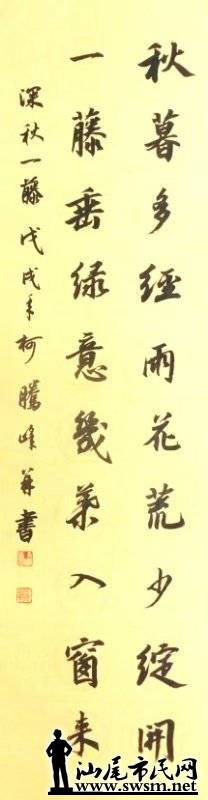 秋暮多經雨花荒少綻開
一藤垂绿意幾葉入窗来
深秋一藤 戊戌年柯騰峰并書
汕尾市民网
www.swsm.net